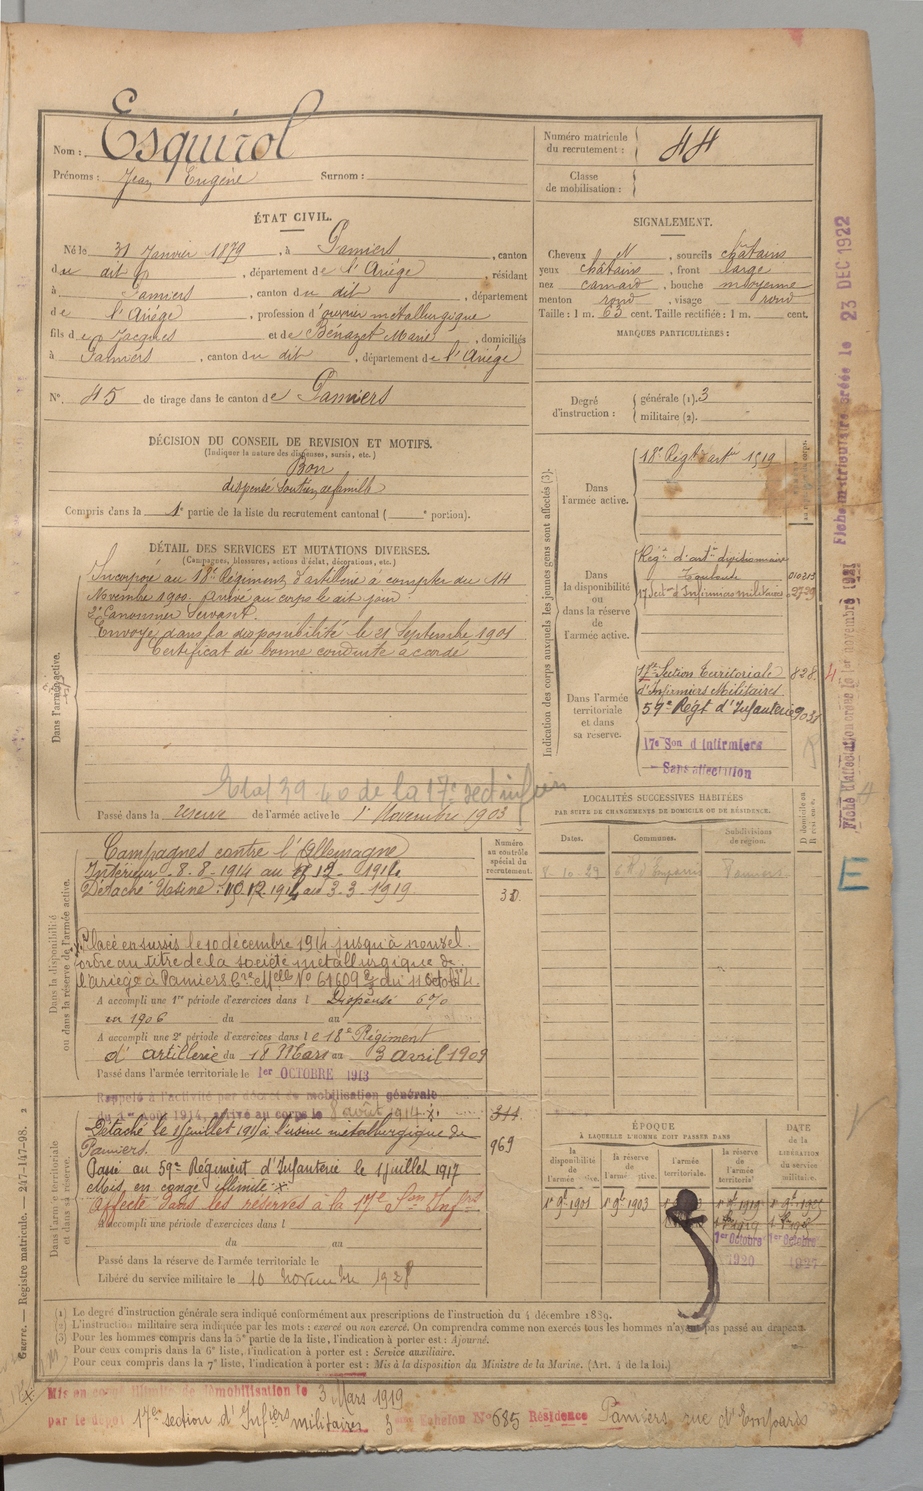 Nom : Esquirol
Prénoms : Jean Eugène Surnom :
Numéro matricule
du recrutement : 44
Classe
de mobilisation :
ÉTAT CIVIL.
Né le 31 Janvier 1879, à Pamiers, canton
du dit, département de l'Ariège, résidant
à Pamiers, canton du dit, département
de l'Ariège, profession d'ouvrier métallurgique
fils de Jacques et de Bénazet Marie, domiciliés
à Pamiers, canton du dit, département de l'Ariège
N°. 45 de tirage dans le canton de Pamiers
SIGNALEMENT.
Cheveux N, sourcils châtains
yeux châtains, front large
nez camard, bouche moyenne
menton rond, visage rond
Taille : 1 m. 63 cent. Taille rectifiée : 1 m. cent.
MARQUES PARTICULIÈRES :
Degré
d'instruction :
générale (1). 3
militaire (2).
DÉCISION DU CONSEIL DE REVISION ET MOTIFS.
(Indiquer la nature des dispenses, sursis, etc.)
Bon
dispensé soutien de famille
Compris dans la 1e partie de la liste du recrutement cantonal ( e portion).
DÉTAIL DES SERVICES ET MUTATIONS DIVERSES.
(Campagnes, blessures, actions d'éclat, décorations, etc.)
Dans l'armée active.
Incorporé au 18e Régiment d'artillerie à compter du 14
Novembre 1900. Arrivé au corps le dit jour.
2e Canonnier Servant.
Envoyé dans la disponibilité le 21 Septembre 1901
Certificat de bonne conduite accordé
Etat 39-40 de la 17e sect infir
Passé dans la réserve de l'armée active le 1er Novembre 1903
Indication des corps auxquels les jeunes gens sont affectés (3).
Dans
l'armée active.
18e Régt artie 1519
Dans
la disponibilité
ou
dans la réserve
de
l'armée active.
Régt d'artie divisionnaire
Toulouse 010313
17 Section d'Infirmiers militaires 2729
Dans l'armée
territoriale
et dans
sa réserve.
17e Section Territoriale 828
d'Infirmiers Militaires
59e Régt d'Infanterie 9031
17e Son d'Infirmiers
Sans affectation
Fiche matriculaire créée le 23 DEC 1922
E
LOCALITÉS SUCCESSIVES HABITÉES
PAR SUITE DE CHANGEMENTS DE DOMICILE OU DE RÉSIDENCE.
Dates. Communes. Subdivisions
de région.
D domicile ou
R résidence.
8-10-29 Pamiers
Dans la disponibilité
ou dans la réserve de l'armée active.
Numéro
au contrôle
spécial du
recrutement.
Campagnes contre l'Allemagne
Intérieur 8-8-1914 au 12 1914
Détaché Usine 10 12 1914 au 3-3-1919
Placé en sursis le 10 décembre 1914 jusqu'à nouvel
ordre au titre de la société métallurgique de
l'ariège à Pamiers Cre Melle N° 61609
A accompli une 1re période d'exercices dans l Dispensé 6%
en 1906 du au
A accompli une 2e période d'exercices dans le 18e Régiment
d'artillerie du 18 Mars au 3 avril 1909
Passé dans l'armée territoriale le 1er OCTOBRE 1913
Dans l'armée territoriale
et dans sa réserve.
Rappelé à l'activité par décret de mobilisation générale
du 1er août 1914, arrivé au corps le 8 août 1914 344
Détaché le 1 juillet 1917 à l'usine métallurgique de
Pamiers. 969
Passé au 59e Régiment d'Infanterie le 1 juillet 1917
Mis en congé illimité
Affecté dans les réserves à la 17e Son Infres
A accompli une période d'exercices dans l
du au
Passé dans la réserve de l'armée territoriale le
Libéré du service militaire le 10 novembre 1928
ÉPOQUE
À LAQUELLE L'HOMME DOIT PASSER DANS
DATE
de la
LIBÉRATION
du service
militaire.
la
disponibilité
de
l'armée active.
la réserve
de
l'armée active.
l'armée
territoriale.
la réserve
de
l'armée
territorle
1er 9bre 1901 1er 9bre 1903
1er Octobre 1er Octobre
1920 1927
Guerre. — Registre matricule. — 247-147-98. 2
(1) Le degré d'instruction générale sera indiqué conformément aux prescriptions de l'instruction du 4 décembre 1889.
(2) L'instruction militaire sera indiquée par les mots : exercé ou non exercé. On comprendra comme non exercés tous les hommes n'ayant pas passé au drapeau.
(3) Pour les hommes compris dans la 5e partie de la liste, l'indication à porter est : Ajourné.
Pour ceux compris dans la 6e liste, l'indication à porter est : Service auxiliaire.
Pour ceux compris dans la 7e liste, l'indication à porter est : Mis à la disposition du Ministre de la Marine. (Art. 4 de la loi.)
Mis en congé illimité de démobilisation le 3 Mars 1919
par le dépôt 17e section d'Infiers militaires 3 Echelon N° 685 Résidence Pamiers rue d'Emparis